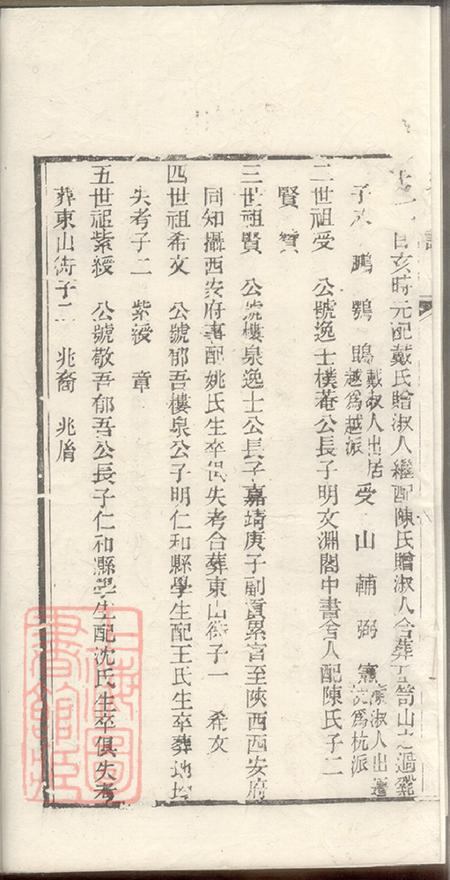 日亥時元配戴氏贈淑人繼配陳氏贈淑人合葬 笥山之過
子 鵬 鶚 鵾 戴淑人出居越為越派 受 山 輔 弼 憲 陳淑人出遷杭為杭派
二世祖受 公號逸士樸菴公長子明文淵閣中書舍人配陳氏子二
賢 贊
三世祖賢 公號樓泉逸士公長子嘉靖庚子副貢累官至陝西西安府
同知攝西安府事配姚氏生卒俱失考合葬東山街子一 希文
四世祖希文 公號郁吾樓泉公子明仁和縣學生配王氏生卒葬地均
失考子二 紫綬 章
五世祖紫綬 公號敬吾郁吾公長子仁和縣學生配沈氏生卒俱失考
葬東山街子二 兆裔 兆眉
上海圖書館藏